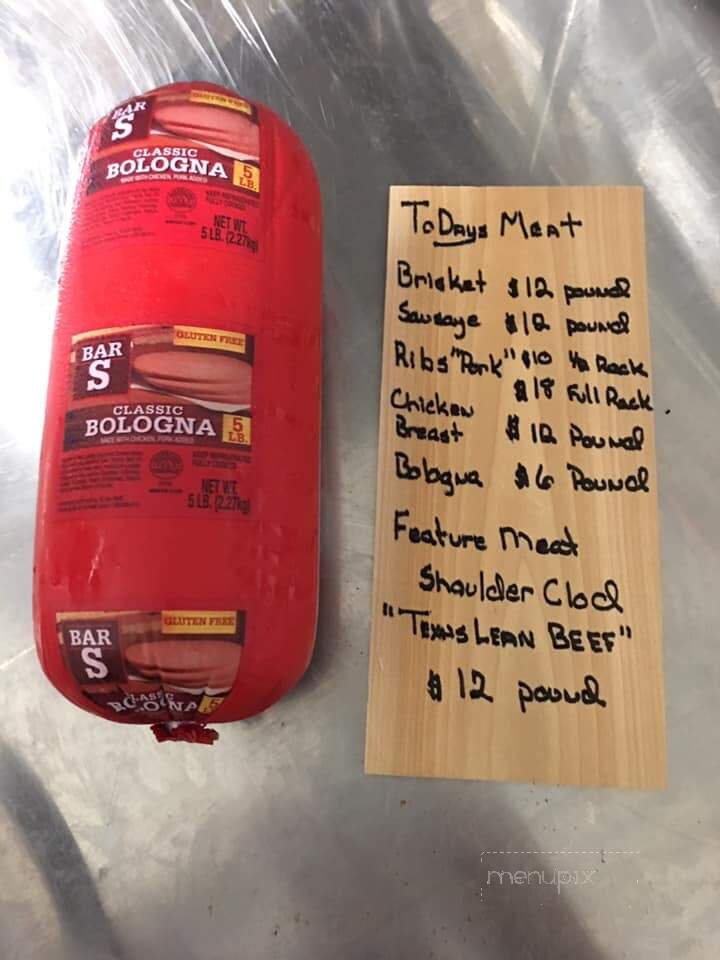 GLUTEN FREE
BAR
S
CLASSIC
BOLOGNA
MADE WITH CHICKEN, PORK ADDED
5
LB.
KEEP REFRIGERATED
FULLY COOKED
NET WT.
5 LB. (2.27kg)
GLUTEN FREE
BAR
S
CLASSIC
BOLOGNA
MADE WITH CHICKEN, PORK ADDED
5
LB.
KEEP REFRIGERATED
FULLY COOKED
NET WT.
5 LB. (2.27kg)
GLUTEN FREE
BAR
S
CLASSIC
BOLOGNA
5
ToDays Meat
Brisket $12 pound
Sausage $12 pound
Ribs "Pork" $10 1/2 Rack
$18 Full Rack
Chicken
Breast $12 Pound
Bologna $6 Pound
Feature Meat
Shoulder Clod
"TEXAS LEAN BEEF"
$12 pound
menupix